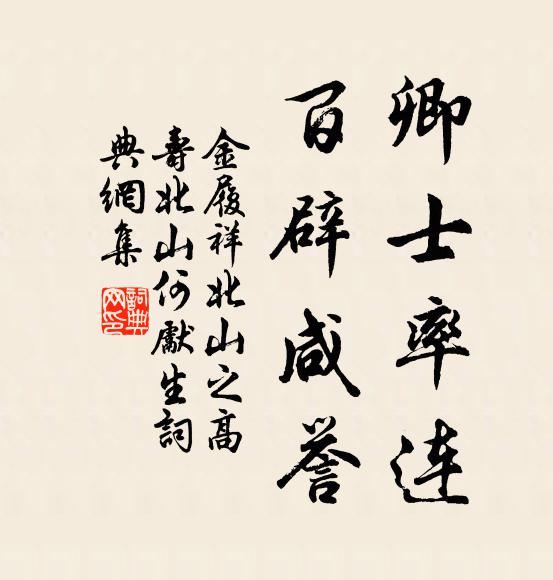 卿士率連
百辟咸譽
金履祥北山之高
壽北山何獻生詞
典網集
詞典網印